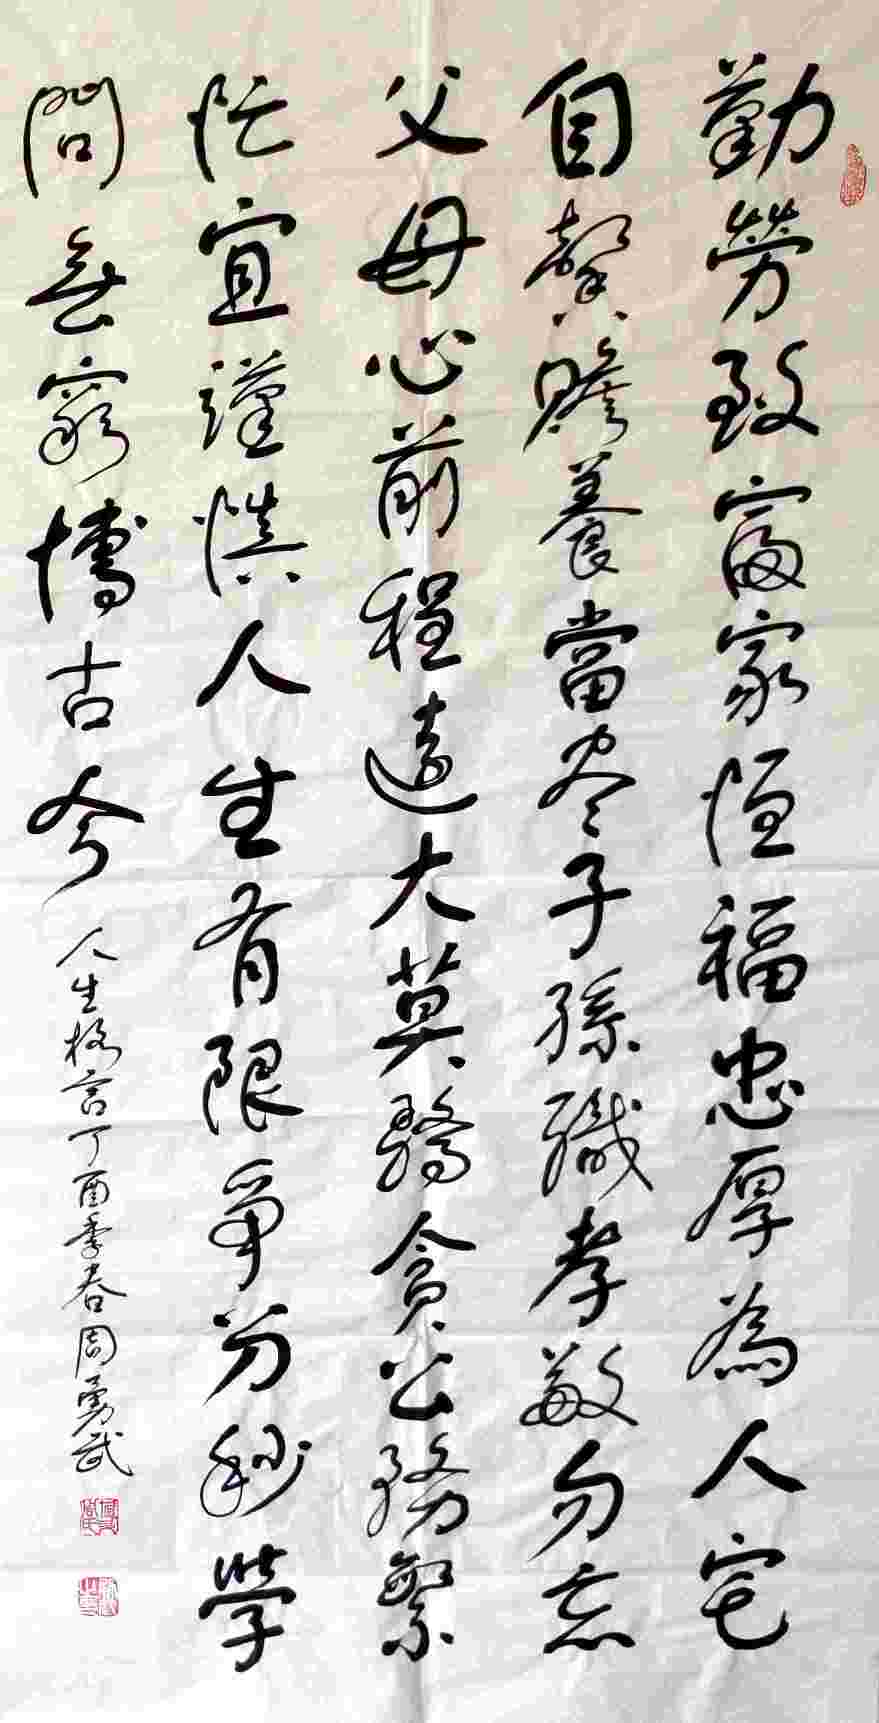 勤勞致富家恒福忠厚為人宅
自馨贍養當尽子孫職孝敬勿忘
父母心前程遠大莫驕貪公務繁
忙宜謹慎人生有限爭分秒學
問無窮博古今
人生格言丁酉季春周勇武